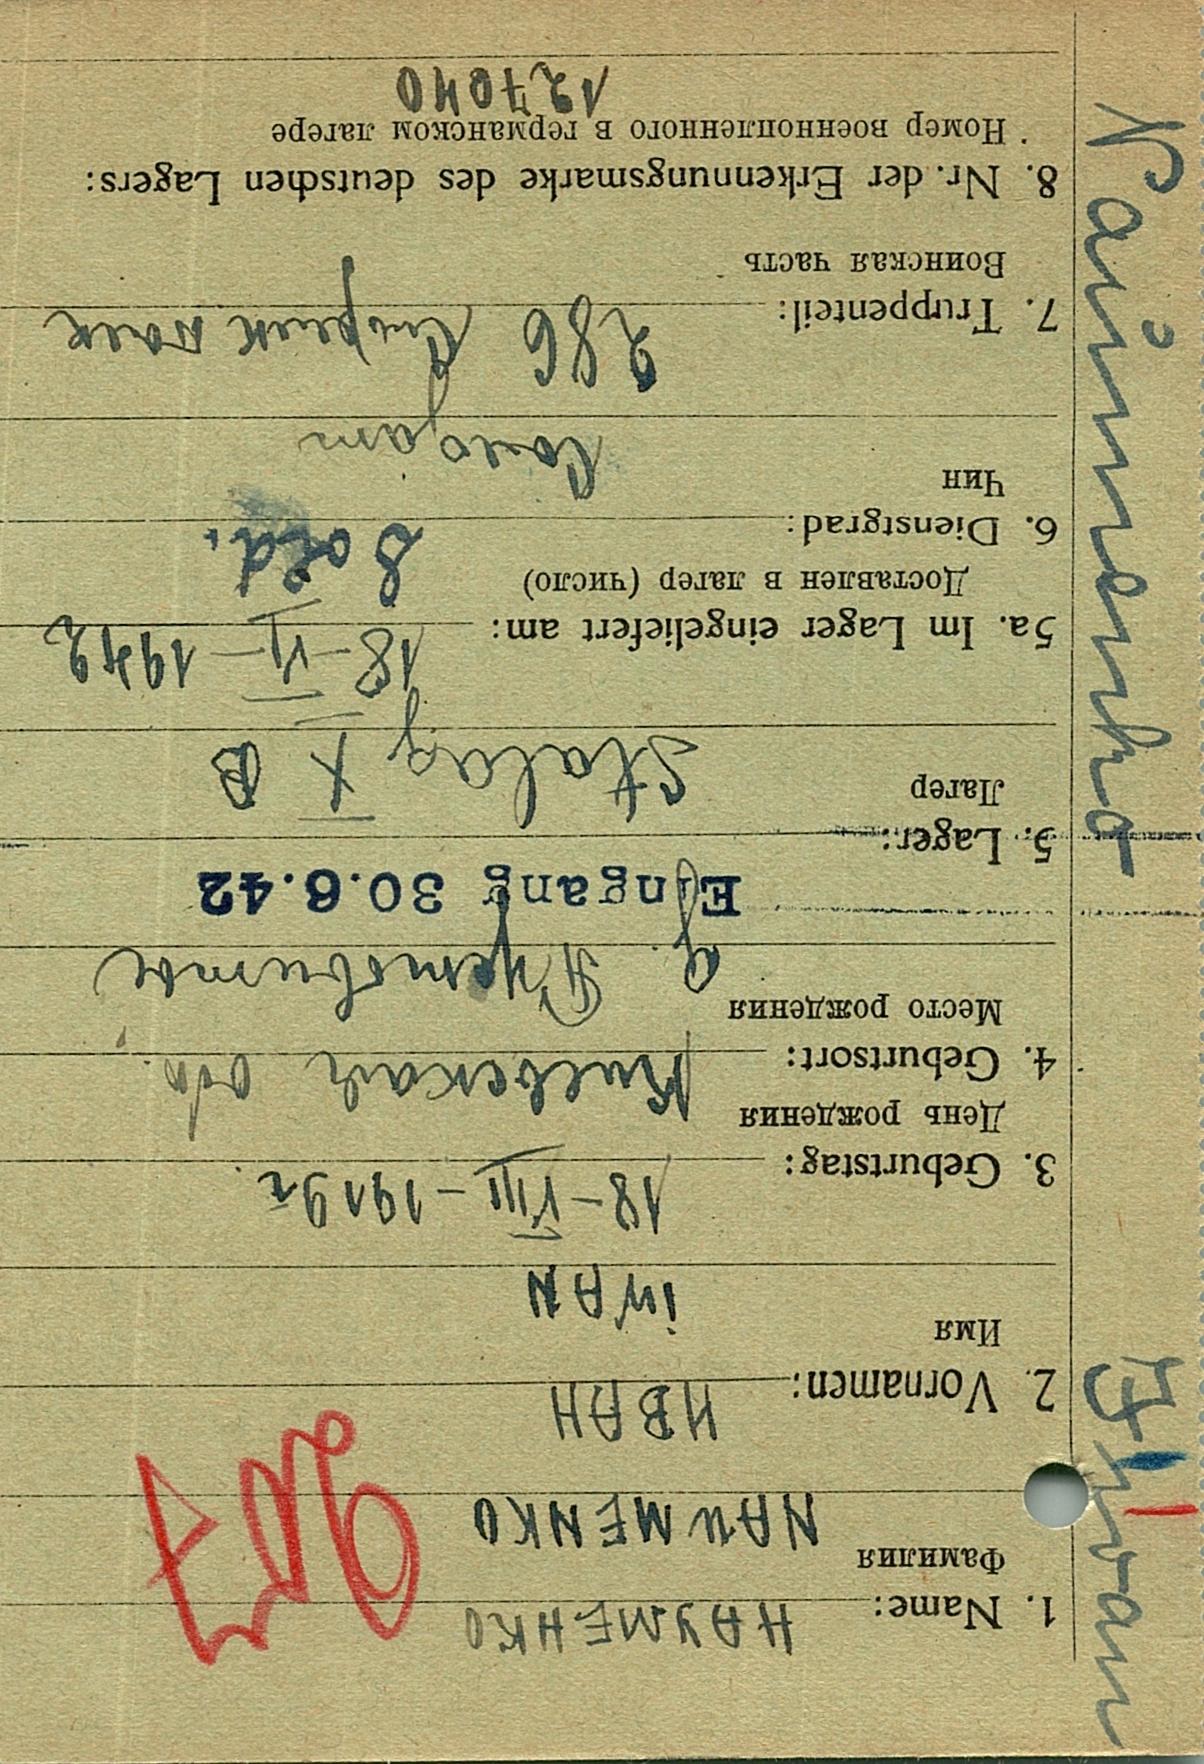 Naumenko Iwan
1. Name: НАУМЕНКО
Фамилия
NAUMENKO
2. Vornamen: ИВАН
Имя
iWAN
3. Geburtstag: 18-VIII-1919г.
День рождения
4. Geburtsort: Киевская обл.
Место рождения
Eingang 30.6.42
5. Lager: Stalag X B
Лагер
5a. Im Lager eingeliefert am: 18-VI-1942
Доставлен в лагер (число)
6. Dienstgrad: Sold.
Чин
Солдат
7. Truppenteil: 286 Стрелк полк
Воинская часть
8. Nr. der Erkennungsmarke des deutschen Lagers:
Номер военнопленного в германском лагере
127040